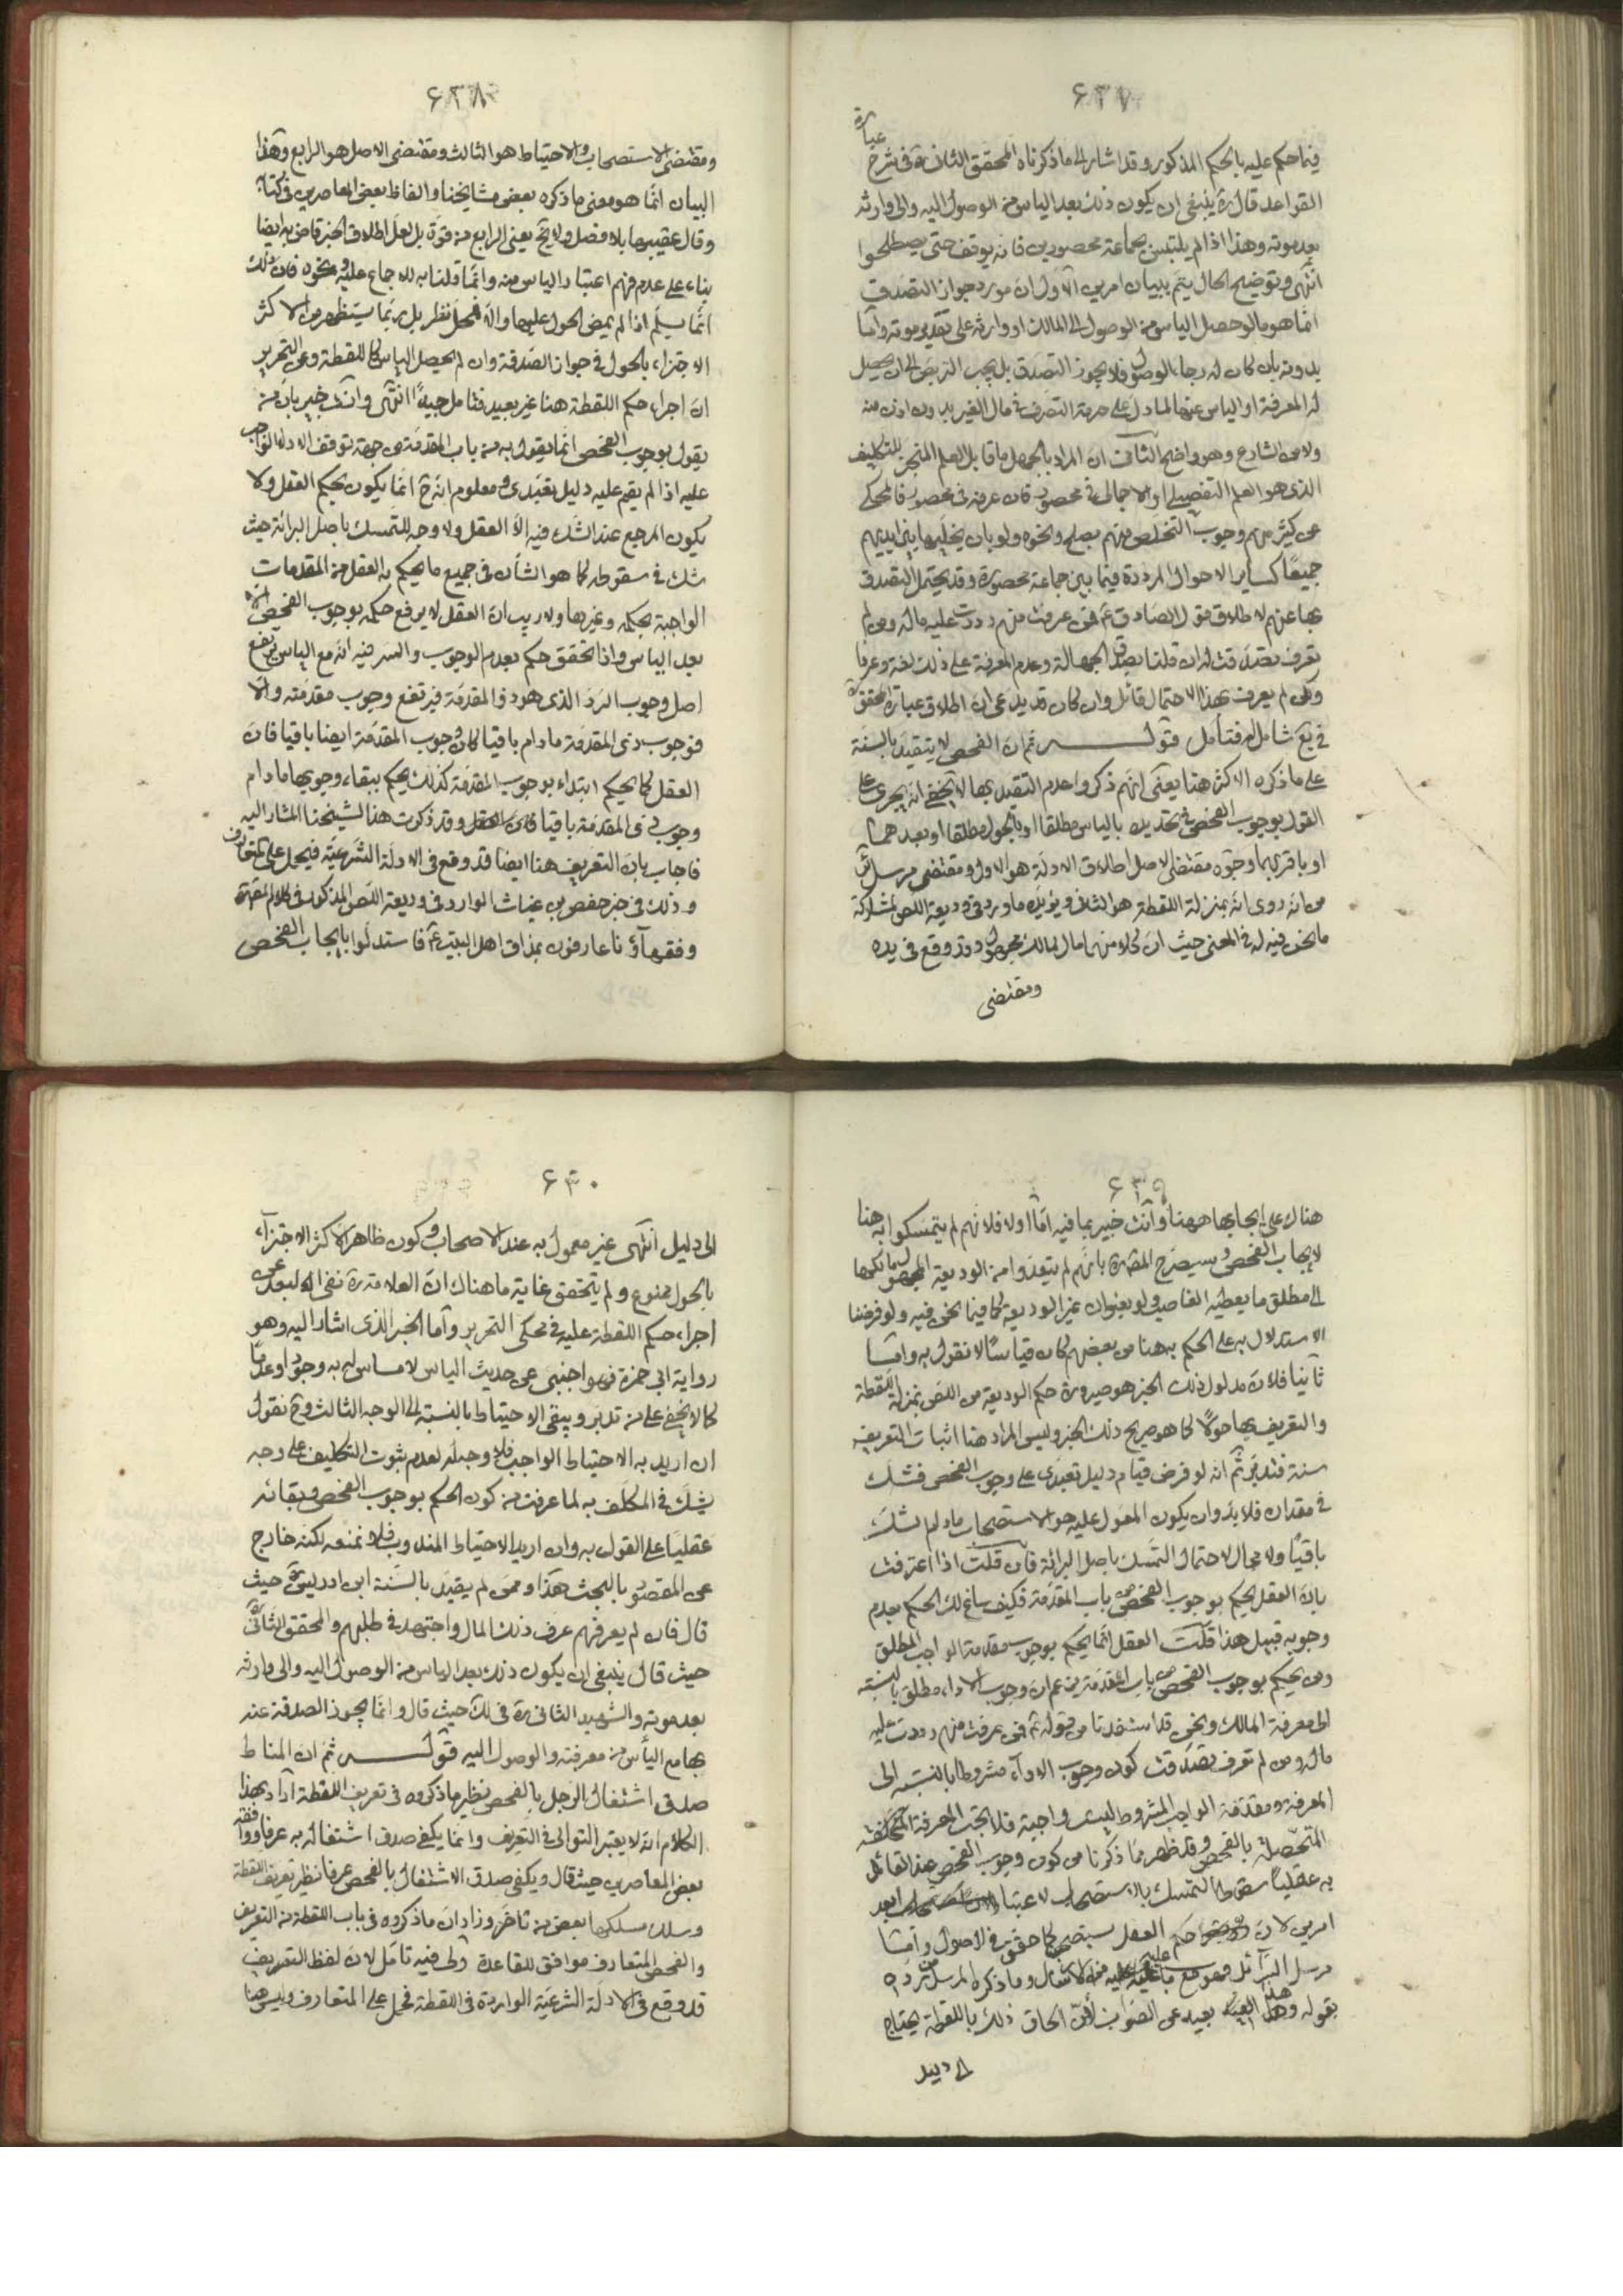 ۶۲۷
فيما حكم عليه بالحكم المذكور وقد اشار الى ما ذكرناه المحقق الثانى ره فى شرح عبارة
القواعد قال ره ينبغى ان يكون ذلك بعد الياس من الوصول اليه والى وارثه
بعد موته وهذا اذا لم يلتبس بجماعة محصورين فانه يوقف حتى يصطلحوا
انتهى وتوضيح الحال يتم ببيان امرين الاول ان مورد جواز التصدق
انما هو ما لو حصل الياس من الوصول الى المالك او وارثه على تقدير موته واما
بدونه بان كان له رجاء الوصول فلا يجوز التصدق بل يجب التربص الى ان يحصل
له المعرفة او الياس عنها لما دل على حرمة التصرف فى مال الغير بدون اذن منه
ولا من الشارع وهو واضح الثانى ان المراد بالجهل ما قابل العلم المنجز للتكليف
الذى هو العلم التفصيلى او الاجمالى فى محصور فان عرفه فى محصور فالمحكى
عن كثير منهم وجوب التخلص منهم بصلح ونحوه ولو بان يخليها بين ايديهم
جميعا كساير الاحوال المرددة فيما بين جماعة محصورة وقد يحتمل التصدق
بها عنهم لاطلاق قول الصادق ع فمن عرفت منهم رددت عليه ماله ومن لم
تعرف تصدقت له ان قلنا بصدق الجهالة وعدم المعرفة على ذلك لغة وعرفا
ولكن لم يعرف بهذا الاحتمال قائل وان كان قد يدعى ان اطلاق عبارة المحقق ره
فى يع شامل له فتأمل قوله ثم ان الفحص لا يتقيد بالسنة
على ما ذكره الاكثر هنا يعنى انهم ذكروا عدم التقييد بها لا يخفى انه يجرى على
القول بوجوب الفحص فى تحديده بالياس مطلقا او بالحول مطلقا او بعدهما
او باقربهما وجوه مقتضى الاصل اطلاق الادلة هو الاول ومقتضى مرسل ئر
من انه روى انه بمنزلة اللقطة هو الثانى ويؤيده ما ورد فى وديعة اللص لمشاركة
ما نحن فيه له فى المعنى حيث ان كلا منهما مال لمالك مجهول وقد وقع فى يده
ومقتضى
۶۲۸
ومقتضى الاستصحاب والاحتياط هو الثالث ومقتضى الاصل هو الرابع وهذا
البيان انما هو معنى ما ذكره بعض مشايخنا والفاظ بعض المعاصرين فى كتابه
وقال عقيبها بلا فصل ولا يخ يعنى الرابع من قوة بل لعل اطلاق الخبر قاض به ايضا
بناء على عدم فهم اعتبار الياس منه وانما قلنا به للاجماع عليه ونحوه فان ذلك
انما يسلم اذا لم يمض الحول عليها والا فمحل نظر بل ربما يستظهر من الاكثر
الاجتزاء بالحول فى جواز الصدقة وان لم يحصل الياس كاللقطة وعن التحرير
ان اجراء حكم اللقطة هنا غير بعيد فتامل جيدا انتهى وانت خبير بان من
يقول بوجوب الفحص انما يقول به من باب المقدمة من جهة توقف الاداء الواجب
عليه اذا لم يقم عليه دليل تعبدى ومعلوم انه ح انما يكون بحكم العقل ولا
يكون المرجع عند الشك فيه الا العقل ولا وجه للتمسك باصل البرائة حيث
شك فى سقوطه كما هو الشأن فى جميع ما يحكم به العقل من المقدمات
الواجبة بحكمه وغيرها ولا ريب ان العقل لا يرفع حكمه بوجوب الفحص الا
بعد الياس واذا تحقق حكم بعدم الوجوب والسر فيه انه مع الياس يرتفع
اصل وجوب الرد الذى هو ذو المقدمة فيرتفع وجوب مقدمته والا
فوجوب ذى المقدمة ما دام باقيا كان وجوب المقدمة ايضا باقيا فان
العقل كما يحكم ابتداء بوجوب المقدمة كذلك يحكم ببقاء وجوبها ما دام
وجوب ذى المقدمة باقيا وقد ذكرت هذا لشيخنا المشار اليه
فاجاب بان التعريف هنا ايضا قد وقع فى الادلة الشرعية فيحمل على المتعارف
وذلك فى خبر حفص بن غياث الوارد فى وديعة اللص المذكور فى كلام المصره
وفقهاؤنا عارفون بمذاق اهل البيت ع فاستدلوا بايجاب الفحص
۶۲۹
هناك على ايجابها ههنا وانت خبير بما فيه اما اولا فلانهم لم يتمسكوا به هنا
لايجاب الفحص وسيصرح المصره بانهم لم يتعدوا من الوديعة المجهول مالكها
الى مطلق ما يعطيه الغاصب ولو بعنوان غير الوديعة كما فيما نحن فيه ولو فرضنا
الاستدلال به على الحكم به هنا من بعضهم كان قياسا لا نقول به واما
ثانيا فلان مدلول ذلك الخبر هو صيرورة حكم الوديعة من اللص بمنزلة اللقطة
والتعريف بها حولا كما هو صريح ذلك الخبر وليس المراد هنا اثبات التعريف
سنة فتدبر ثم انه لو فرض قيام دليل تعبدى على وجوب الفحص فشك
فى مقداره فلا بد وان يكون المعول عليه هو الاستصحاب ما دام لشك
باقيا ولا مجال لاحتمال التمسك باصل البرائة فان قلت اذا اعترفت
بان العقل يحكم بوجوب الفحص من باب المقدمة فكيف ساغ لك الحكم بعدم
وجوبه قبيل هذا قلت العقل انما يحكم بوجوب مقدمة الواجب المطلق
ومن يحكم بوجوب الفحص من باب المقدمة يزعم ان وجوب الاداء مطلق بالنسبة
الى معرفة المالك ونحن قد استفدنا من قوله ع فمن عرفت منهم رددت عليه
ماله ومن لم تعرف تصدقت كون وجوب الاداء مشروطا بالنسبة الى
المعرفة ومقدمة الواجب المشروط ليست واجبة فلا تجب المعرفة
المتحصلة بالفحص وقد ظهر مما ذكرنا من كون وجوب الفحص عند القائل
به عقليا سقوط التمسك بالاستصحاب لاعتبار احد
امرين لان حكم العقل لا يستصحب كما حقق فى الاصول واما
مرسل السرائر فهو مع ما عليه من الارسال وما ذكره المرسل من رده
بقوله وهذا بعيد عن الصواب لان الحاق ذلك باللقطة يحتاج
الى دليل
۶۳۰
الى دليل انتهى غير معمول به عند الاصحاب وكون ظاهر الاكثر الاجتزاء
بالحول ممنوع ولم يتحقق غاية ما هناك ان العلامة ره نفى البعد عن
اجراء حكم اللقطة عليه فى محكى التحرير واما الخبر الذى اشار اليه وهو
رواية ابى حمزة فهو اجنبى عن حديث الياس لا مساس له به وجودا وعدما
كما لا يخفى على من تدبر ويبقى الاحتياط بالنسبة الى الوجه الثالث وح نقول
ان اريد به الاحتياط الواجب فلا وجه له لعدم ثبوت التكليف على وجه
يشك فى المكلف به لما عرفت من كون الحكم بوجوب الفحص وبقائه
عقليا على القول به وان اريد الاحتياط المندوب فلا نمنعه لكنه خارج
عن المقصود بالبحث هذا وممن لم يقيد بالسنة ابن ادريس ره حيث
قال فان لم يعرفهم عرف ذلك المال واجتهد فى طلبهم والمحقق الثانى ره
حيث قال ينبغى ان يكون ذلك بعد الياس من الوصول اليه والى وارثه
بعد موته والشهيد الثانى ره فى لك حيث قال وانما يجوز الصدقة عنه
بها مع اليأس من معرفته والوصول اليه قوله ثم ان المناط
صدق اشتغال الرجل بالفحص نظير ما ذكروه فى تعريف اللقطة اراد بهذا
الكلام انه لا يعتبر التوالى فى التعريف وانما يكفى صدق اشتغاله به عرفا ووافقه
بعض المعاصرين حيث قال ويكفى صدق الاشتغال بالفحص عرفا نظير تعريف اللقطة
وسلك مسلكهما بعض من تاخر وزاد ان ما ذكروه فى باب اللقطة من التعريف
والفحص المتعارف موافق للقاعدة ولى فيه تامل لان لفظ التعريف
قد وقع فى الادلة الشرعية الواردة فى اللقطة فحمل على المتعارف وليس هنا